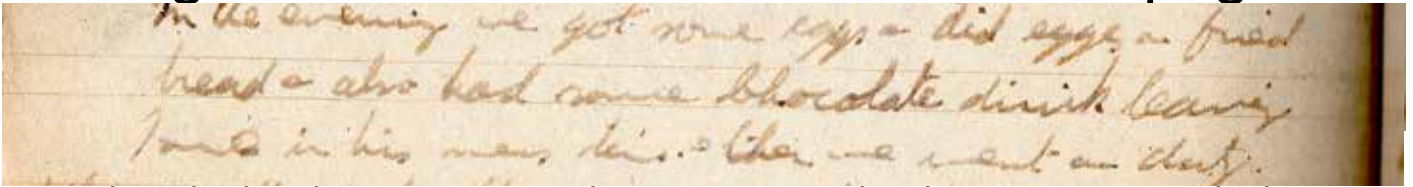 In the evening we got some eggs & did eggs on fried
bread & also had some Chocolate drink leaving
in his mess tin. & then we went on duty.